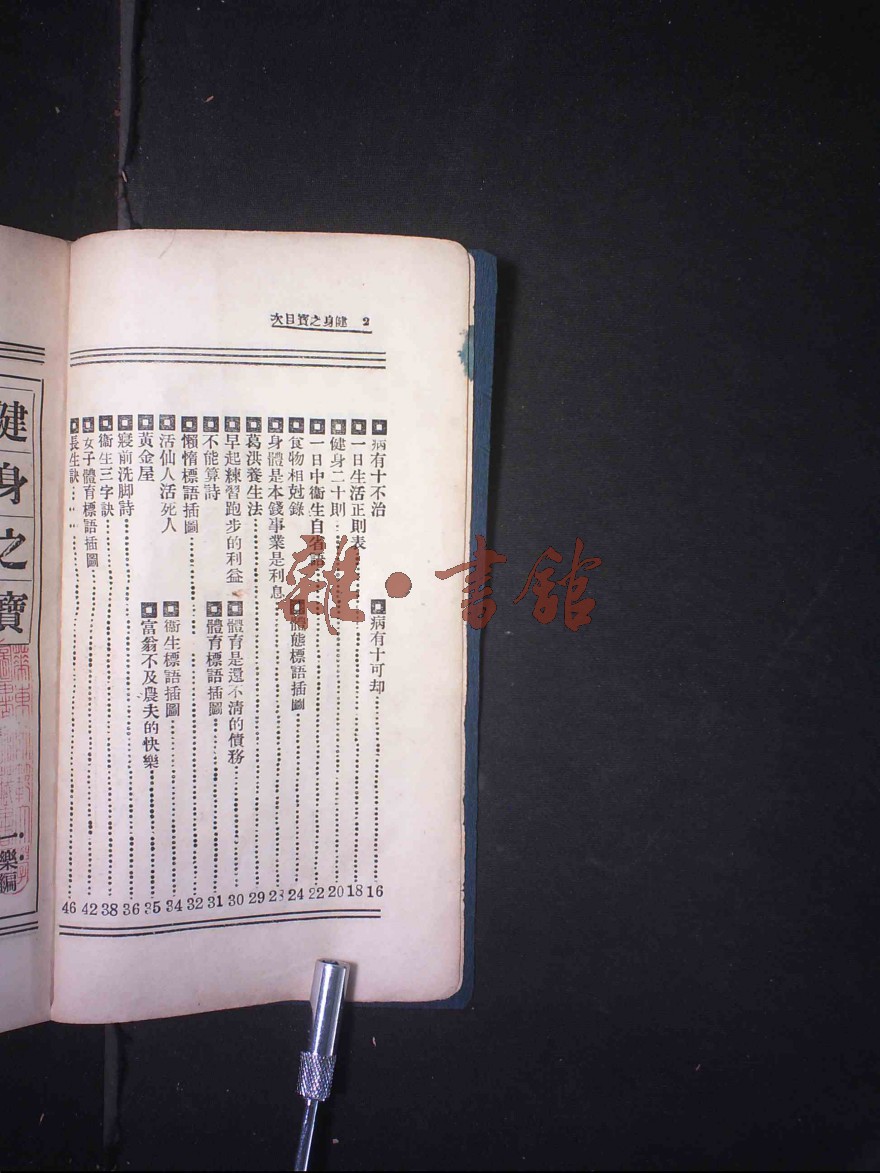 健身之寶目次 2
病有十不治 病有十可却 16
一日生活正則表 18
健身二十則 20
一日中衞生自省語 22
食物相尅錄 體態標語插圖 24
身體是本錢事業是利息 28
葛洪養生法 29
早起練習跑步的利益 體育是還不清的債務 30
不能算詩 體育標語插圖 31
懶惰標語插圖 32
活仙人活死人 衞生標語插圖 34
黃金屋 富翁不及農夫的快樂 35
寢前洗脚詩 36
衞生三字訣 38
女子體育標語插圖 42
長生訣 46
健身之寶
一樂編
雜·書館